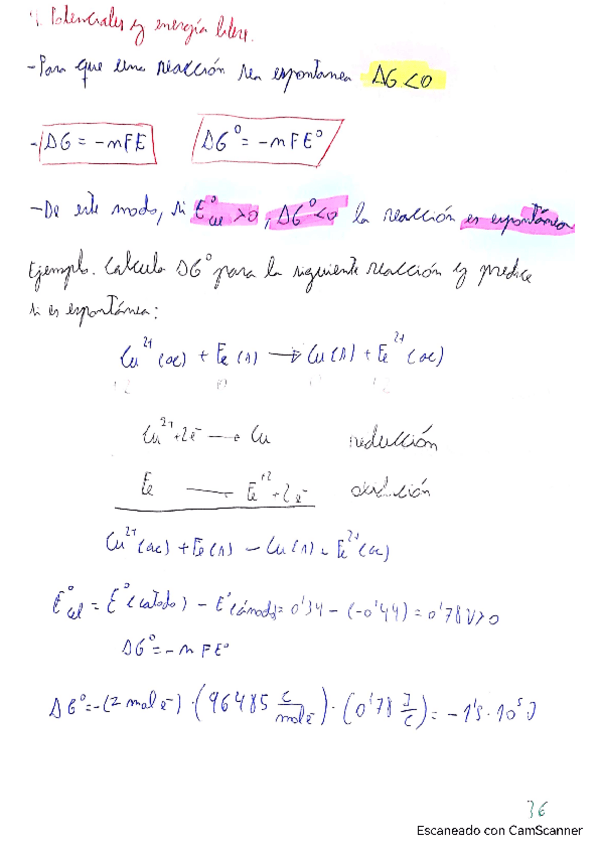 4. Potenciales y energía libre.
-Para que una reacción sea espontanea ΔG<0
- ΔG = -nFE ΔG° = -nFE°
-De este modo, si E°cel >0, ΔG°<0 la reacción es espontánea
Ejemplo. Calcula ΔG° para la siguiente reacción y predice
si es espontánea:
Cu²⁺(ac) + Fe(s) → Cu(s) + Fe²⁺(ac)
Cu²⁺+2e⁻ → Cu reducción
Fe — Fe⁺²+2e⁻ oxidación
Cu²⁺(ac) + Fe(s) – Cu(s) – Fe²⁺(ac)
E°cel = E°(catodo) – E°(ánodo)= 0'34 – (-0'44) = 0'78V>0
ΔG°= -nFE°
ΔG°=-(2 mol e⁻)·(96485 C/mol e⁻)·(0'78 J/C)= -1'5·10⁵J
36
Escaneado con CamScanner